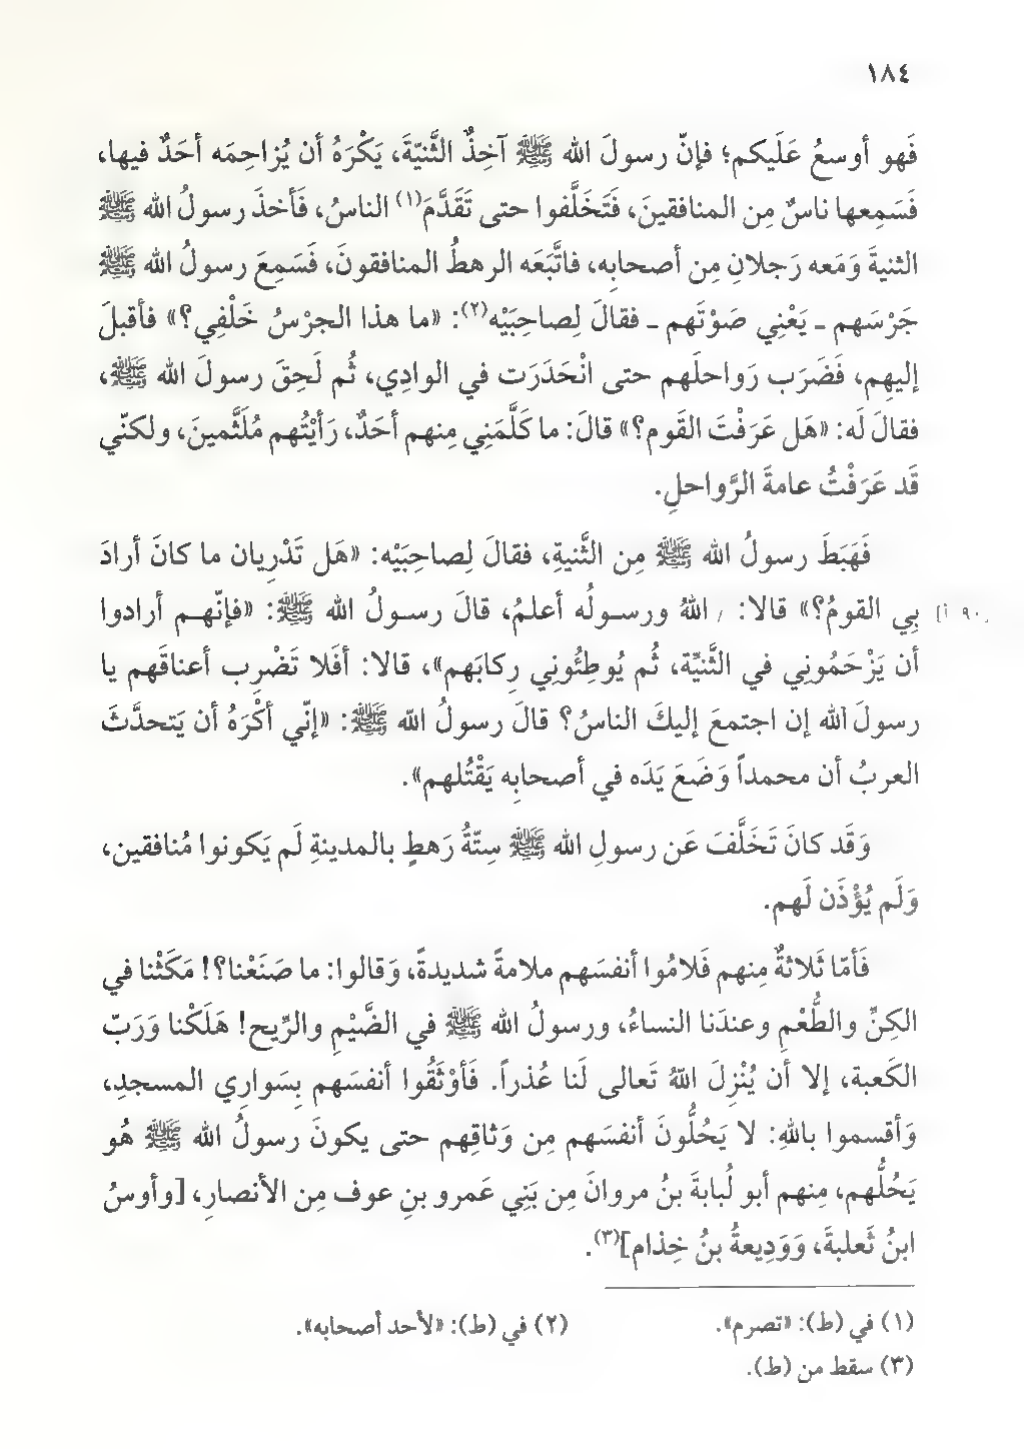 ١٨٤
فَهو أوسعُ عَلَيكم؛ فإنّ رسولَ الله ﷺ آخِذٌ الثَّنيّةَ، يَكْرَهُ أن يُزاحِمَه أحَدٌ فيها،
فَسَمِعها ناسٌ مِن المنافقينَ، فَتَخَلَّفوا حتى تَقَدَّمَ(١) الناسُ، فَأخذَ رسولُ الله ﷺ
الثنيةَ وَمَعه رَجلانِ مِن أصحابِه، فاتَّبَعَه الرهطُ المنافقونَ، فَسَمِعَ رسولُ الله ﷺ
جَرْسَهم ـ يَعْنِي صَوْتَهم ـ فقالَ لِصاحِبَيْه(٢): «ما هذا الجرْسُ خَلْفِي؟» فأقبلَ
إليهِم، فَضَرَب رَواحلَهم حتى انْحَدَرَت في الوادِي، ثُم لَحِقَ رسولَ الله ﷺ،
فقالَ لَه: «هَل عَرَفْتَ القَوم؟» قالَ: ما كَلَّمَنِي مِنهم أحَدٌ، رَأيْتُهم مُلَثَّمينَ، ولكنّي
قَد عَرَفْتُ عامةَ الرَّواحلِ.
فَهَبَطَ رسولُ الله ﷺ مِن الثَّنيةِ، فقالَ لِصاحِبَيْه: «هَل تَدْرِيان ما كانَ أرادَ
بِي القومُ؟» قالا: / اللهُ ورسولُه أعلمُ، قالَ رسولُ الله ﷺ: «فإنّهم أرادوا [٩٠ أ]
أن يَزْحَمُونِي في الثَّنيِّة، ثُم يُوطِئُوني رِكابَهم»، قالا: أفَلا تَضْرِب أعناقَهم يا
رسولَ الله إن اجتمعَ إليكَ الناسُ؟ قالَ رسولُ الله ﷺ: «إنّي أكْرَهُ أن يَتحدَّثَ
العربُ أن محمداً وَضَعَ يَدَه في أصحابِه يَقْتُلهم».
وَقَد كانَ تَخَلَّفَ عَن رسولِ الله ﷺ سِتّةُ رَهطٍ بالمدينةِ لَم يَكونوا مُنافقين،
وَلَم يُؤْذَن لَهم.
فَأمّا ثَلاثةٌ مِنهم فَلامُوا أنفسَهم ملامةً شديدةً، وَقالوا: ما صَنَعْنا؟! مَكَثْنا في
الكِنِّ والطُّعْمِ وعندَنا النساءُ، ورسولُ الله ﷺ في الضَّيْمِ والرِّيح! هَلَكْنا وَرَبّ
الكَعبة، إلا أن يُنْزِلَ اللهُ تَعالى لَنا عُذراً. فَأوْثَقُوا أنفسَهم بِسَوارِي المسجدِ،
وَأقسموا باللهِ: لا يَحُلُّونَ أنفسَهم مِن وَثاقِهم حتى يكونَ رسولُ الله ﷺ هُو
يَحُلُّهم، مِنهم أبو لُبابةَ بنُ مروانَ مِن بَنِي عَمرو بنِ عوف مِن الأنصارِ، [وأوسُ
ابنُ ثَعلبةَ، وَوَدِيعةُ بنُ خِذام](٣).
(١) في (ط): «تصرم». (٢) في (ط): «لأحد أصحابه».
(٣) سقط من (ط).